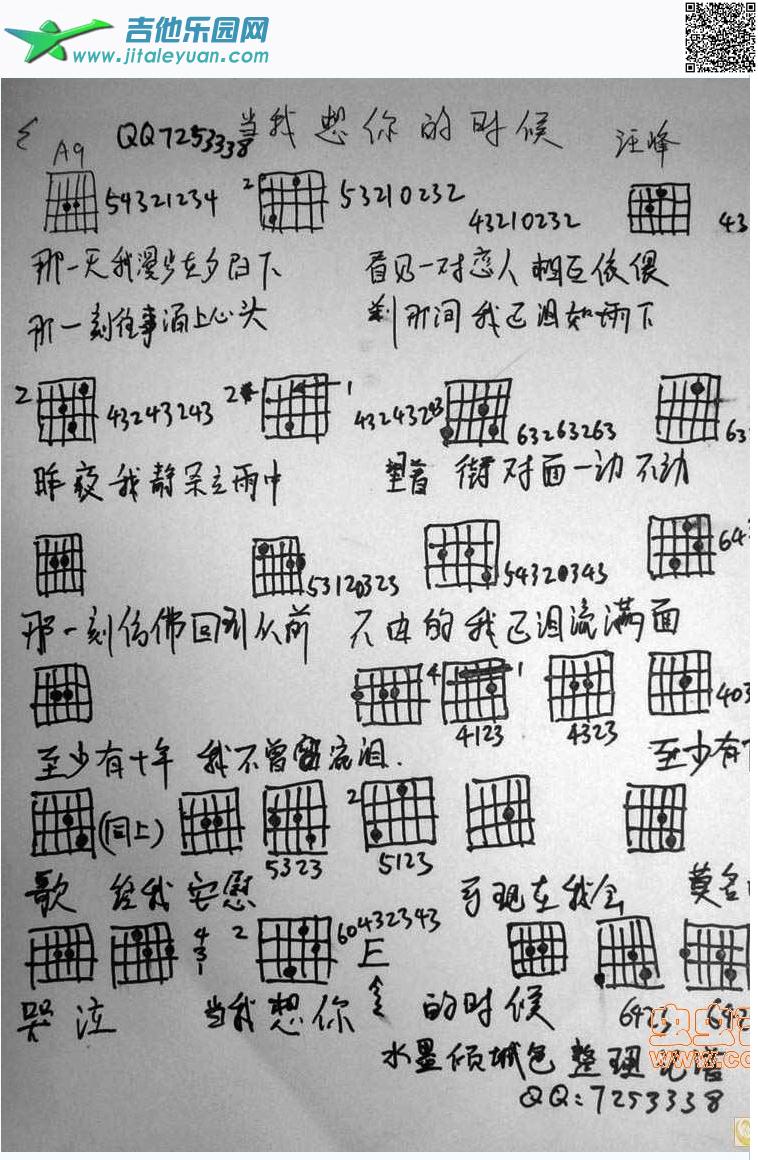 吉他乐园网
www.jitaleyuan.com
QQ7253338 当我想你的时候 汪峰
A9 54321234 2 53210232 43210232 43
那一天我漫步在夕阳下 看见一对恋人相互依偎
那一刻往事涌上心头 刹那间我已泪如雨下
2 43243243 2 1 43243243 63263263 63
昨夜我静呆立雨中 望着街对面一动不动
53120323 54320343 64
那一刻仿佛回到从前 不由的我已泪流满面
4 1 4123 4323 403
至少有十年 我不曾流泪. 至少有
(同上) 5323 2 5123
歌 给我安慰 可现在我会 莫名
4 3 1 2 60432343 E
哭泣 当我想你 的时候 6423 642
水墨倾城色 整理记谱
QQ:7253338